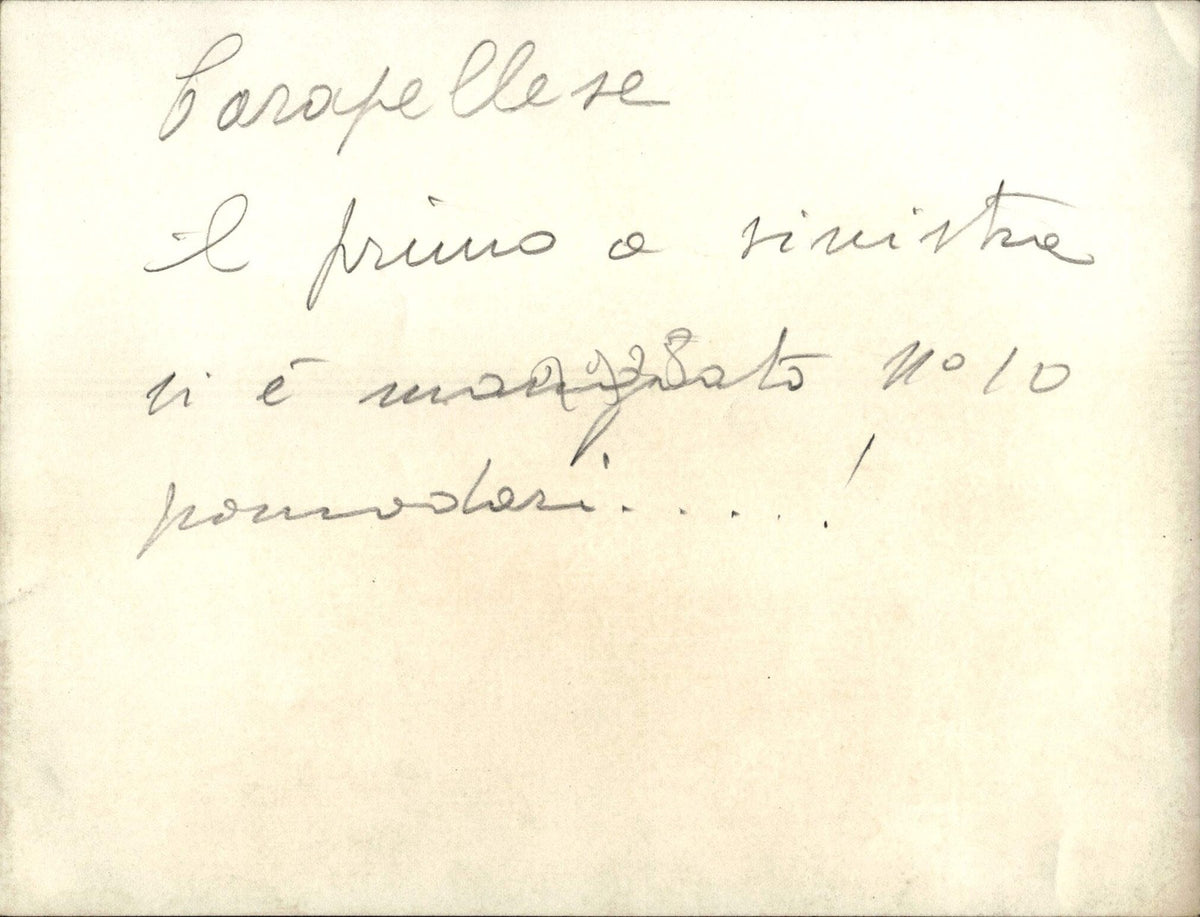 Carapellese
il primo a sinistra
si è mangiato n° 10
pomodori.....!